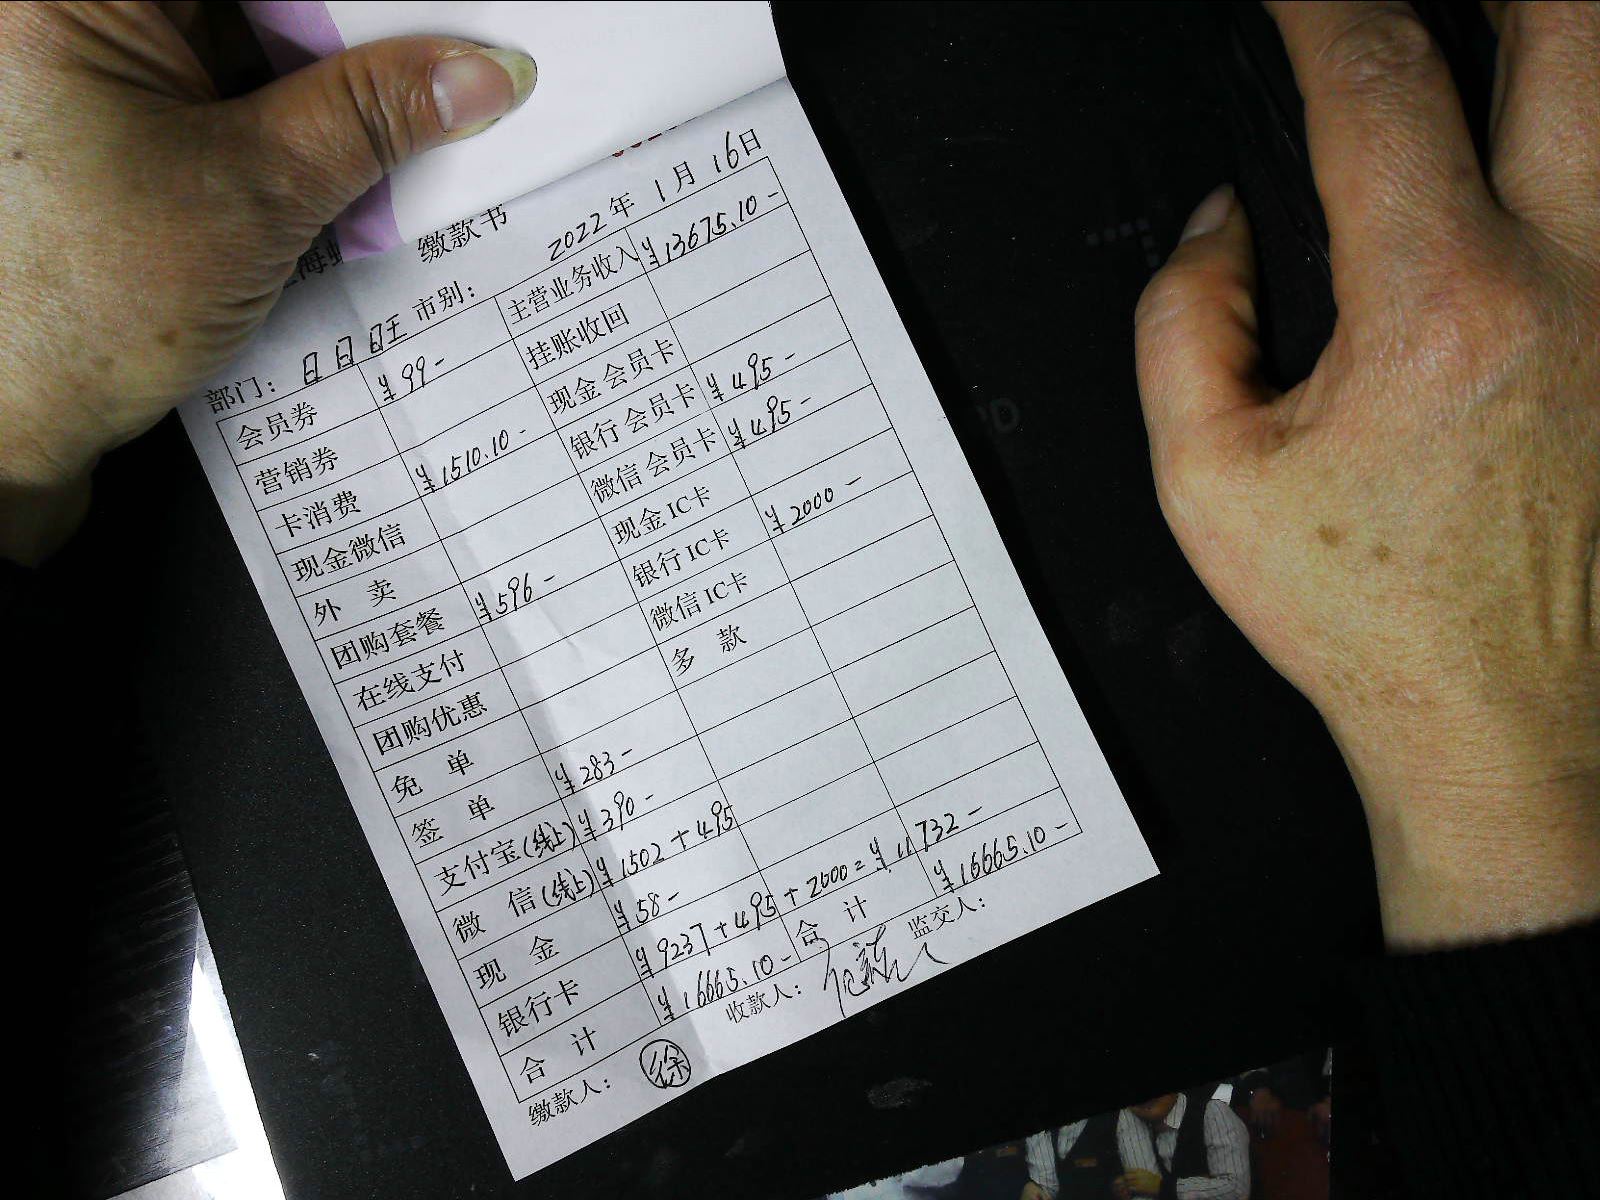 缴款书
部门： 日日旺 市别： 2022年 1月 16日
会员券 ¥99- 主营业务收入 ¥13675.10-
营销券 挂账收回
卡消费 ¥1510.10- 现金会员卡
现金微信 银行会员卡 ¥495-
外 卖 微信会员卡 ¥495-
团购套餐 ¥596- 现金IC卡
在线支付 银行IC卡 ¥2000-
团购优惠 微信IC卡
免 单 多 款
签 单 ¥283-
支付宝(线上) ¥390-
微 信(线上) ¥1502+495
现 金 ¥58-
银行卡 ¥9237+495+2000=¥11732-
合 计 ¥16665.10- 合 计 ¥16665.10-
缴款人： 徐 收款人： 监交人：